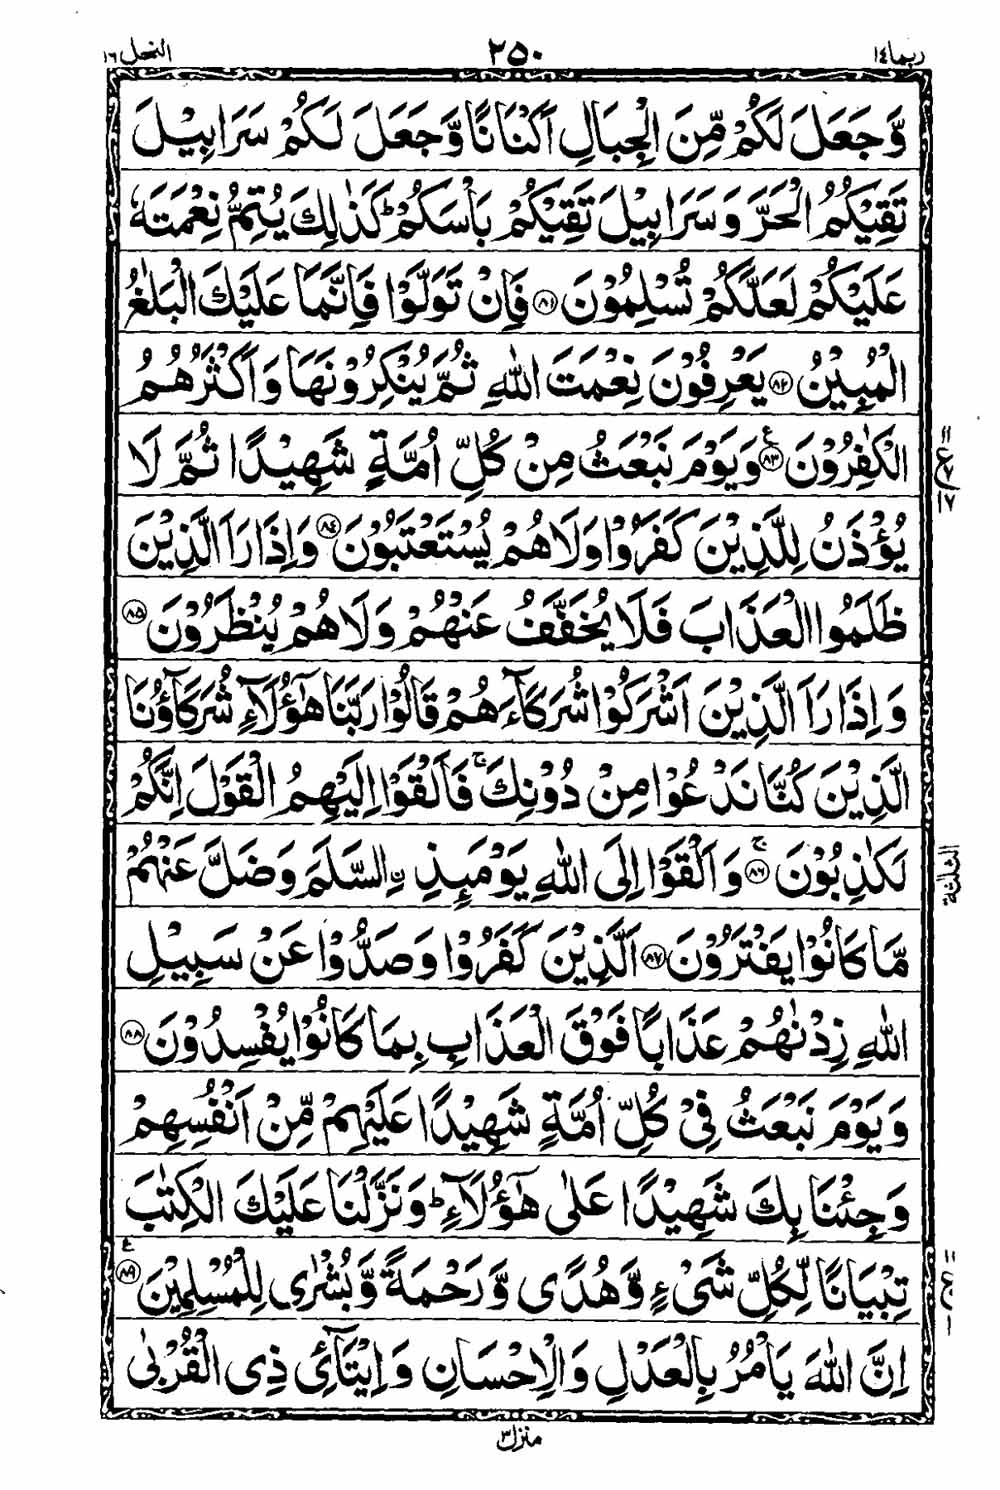 ربما ١٤ ٢٥٠ النحل ١٦
وَّجَعَلَ لَكُمْ مِّنَ الْجِبَالِ اَكْنَانًا وَّجَعَلَ لَكُمْ سَرَابِيْلَ
تَقِيْكُمُ الْحَرَّ وَسَرَابِيْلَ تَقِيْكُمْ بَاْسَكُمْ ؕ كَذٰلِكَ يُتِمُّ نِعْمَتَهٗ
عَلَيْكُمْ لَعَلَّكُمْ تُسْلِمُوْنَ ﴿٨١﴾ فَاِنْ تَوَلَّوْا فَاِنَّمَا عَلَيْكَ الْبَلٰغُ
الْمُبِيْنُ ﴿٨٢﴾ يَعْرِفُوْنَ نِعْمَتَ اللّٰهِ ثُمَّ يُنْكِرُوْنَهَا وَاَكْثَرُهُمُ
الْكٰفِرُوْنَ ﴿٨٣﴾ ع وَيَوْمَ نَبْعَثُ مِنْ كُلِّ اُمَّةٍ شَهِيْدًا ثُمَّ لَا
يُؤْذَنُ لِلَّذِيْنَ كَفَرُوْا وَلَا هُمْ يُسْتَعْتَبُوْنَ ﴿٨٤﴾ وَاِذَا رَاَ الَّذِيْنَ
ظَلَمُوا الْعَذَابَ فَلَا يُخَفَّفُ عَنْهُمْ وَلَا هُمْ يُنْظَرُوْنَ ﴿٨٥﴾
وَاِذَا رَاَ الَّذِيْنَ اَشْرَكُوْا شُرَكَآءَهُمْ قَالُوْا رَبَّنَا هٰٓؤُلَآءِ شُرَكَآؤُنَا
الَّذِيْنَ كُنَّا نَدْعُوْا مِنْ دُوْنِكَ ۚ فَاَلْقَوْا اِلَيْهِمُ الْقَوْلَ اِنَّكُمْ
لَكٰذِبُوْنَ ﴿٨٦﴾ ۚ وَاَلْقَوْا اِلَى اللّٰهِ يَوْمَئِذِ ۨالسَّلَمَ وَضَلَّ عَنْهُمْ
مَّا كَانُوْا يَفْتَرُوْنَ ﴿٨٧﴾ اَلَّذِيْنَ كَفَرُوْا وَصَدُّوْا عَنْ سَبِيْلِ
اللّٰهِ زِدْنٰهُمْ عَذَابًا فَوْقَ الْعَذَابِ بِمَا كَانُوْا يُفْسِدُوْنَ ﴿٨٨﴾
وَيَوْمَ نَبْعَثُ فِيْ كُلِّ اُمَّةٍ شَهِيْدًا عَلَيْهِمْ مِّنْ اَنْفُسِهِمْ
وَجِئْنَا بِكَ شَهِيْدًا عَلٰى هٰٓؤُلَآءِ ؕ وَنَزَّلْنَا عَلَيْكَ الْكِتٰبَ
تِبْيَانًا لِّكُلِّ شَيْءٍ وَّهُدًى وَّرَحْمَةً وَّبُشْرٰى لِلْمُسْلِمِيْنَ ﴿٨٩﴾ ع
اِنَّ اللّٰهَ يَاْمُرُ بِالْعَدْلِ وَالْاِحْسَانِ وَاِيْتَآئِ ذِي الْقُرْبٰى
منزل ٣
الثلثة